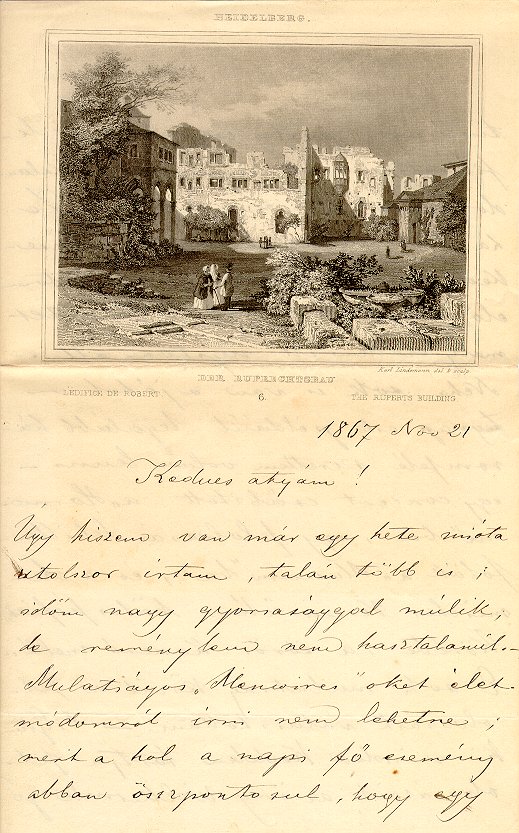 HEIDELBERG.
Karl Lindemann del. & sculp.
DER RUPRECHTSBAU
L'EDIFICE DE ROBERT
6.
THE RUPERTS BUILDING
1867 Nov 21
Kedves atyám!
Úgy hiszem van már egy hete mióta
utolszor írtam, talán több is;
időm nagy gyorsasággal múlik,
de reménylem nem hasztalanúl.-
Mulatságos „Menoires" oket élet-
módomról írni nem lehetne;
mert a hol a napi fő esemény
abban öszpontosul, hogy egy